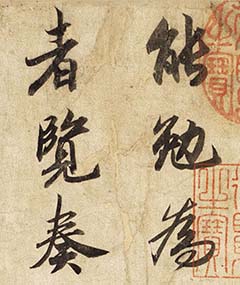 能勉為
者覽奏